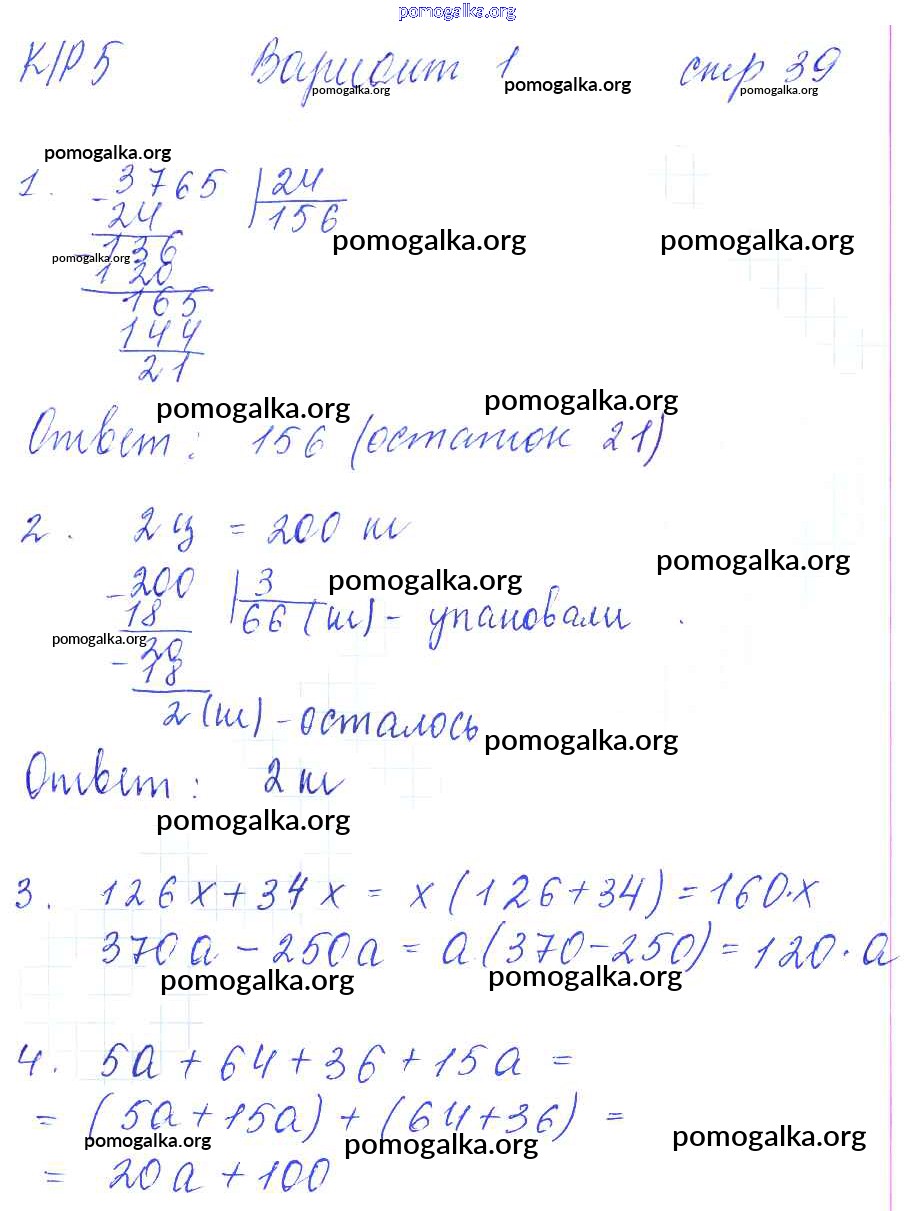 pomogalka.org
К/Р 5 Вариант 1 стр 39
pomogalka.org pomogalka.org pomogalka.org
pomogalka.org
1. - 3765 | 24
24 156
pomogalka.org pomogalka.org
- 136
pomogalka.org
120
165
144
21
pomogalka.org pomogalka.org
Ответ: 156 (остаток 21)
2. 2 ц = 200 кг
pomogalka.org
- 200 | 3
pomogalka.org
18 66 (кг) - упаковали
pomogalka.org
- 20
18
2 (кг) - осталось
pomogalka.org
Ответ: 2 кг
pomogalka.org
3. 126x + 34x = x(126+34) = 160·x
370a - 250a = a(370-250) = 120·a
pomogalka.org pomogalka.org
4. 5a + 64 + 36 + 15a =
= (5a+15a) + (64+36) =
pomogalka.org pomogalka.org pomogalka.org
= 20a + 100